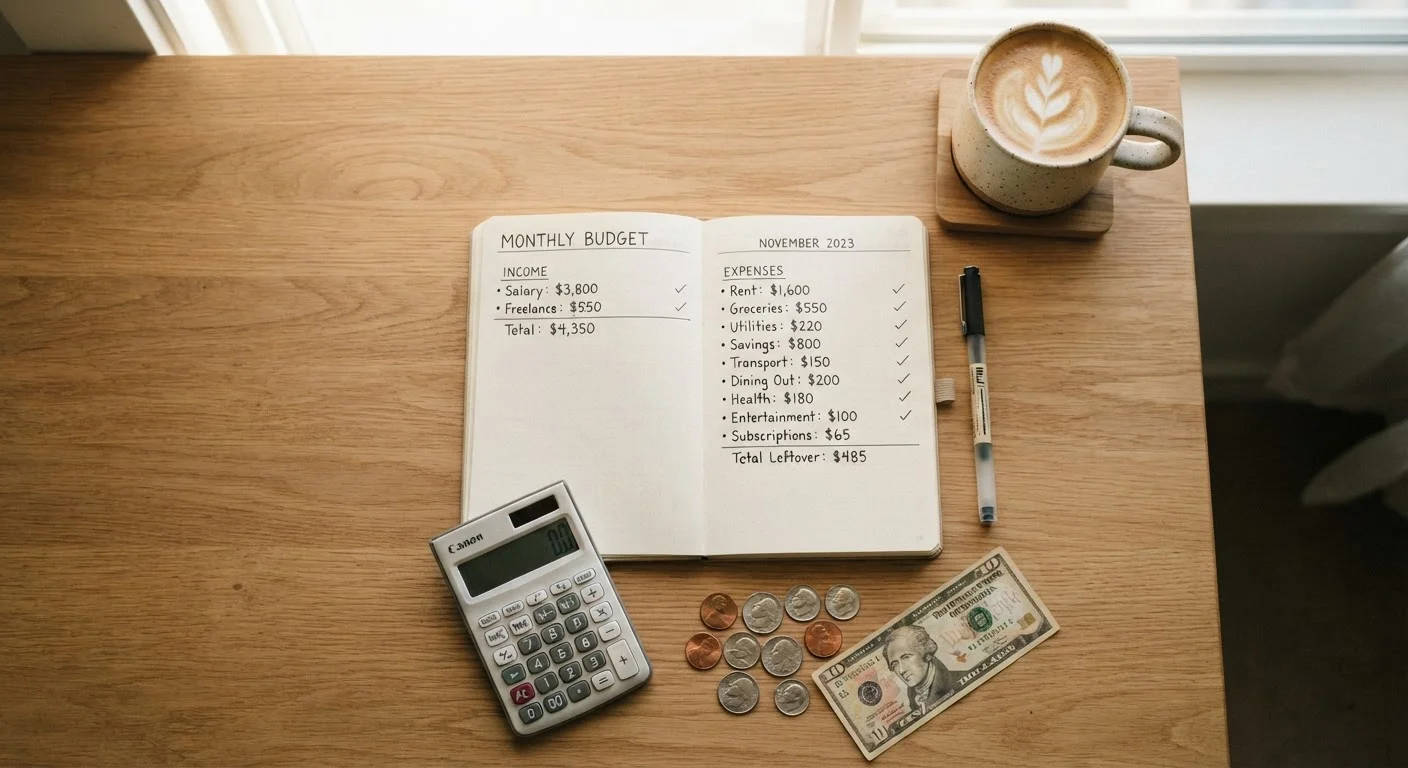 MONTHLY BUDGET
INCOME
• Salary: $3,800 ✓
• Freelance: $550 ✓
Total: $4,350
NOVEMBER 2023
EXPENSES
• Rent: $1,600 ✓
• Groceries: $550 ✓
• Utilities: $220 ✓
• Savings: $800 ✓
• Transport: $150 ✓
• Dining Out: $200 ✓
• Health: $180 ✓
• Entertainment: $100 ✓
• Subscriptions: $65
Total Leftover: $485
Canon